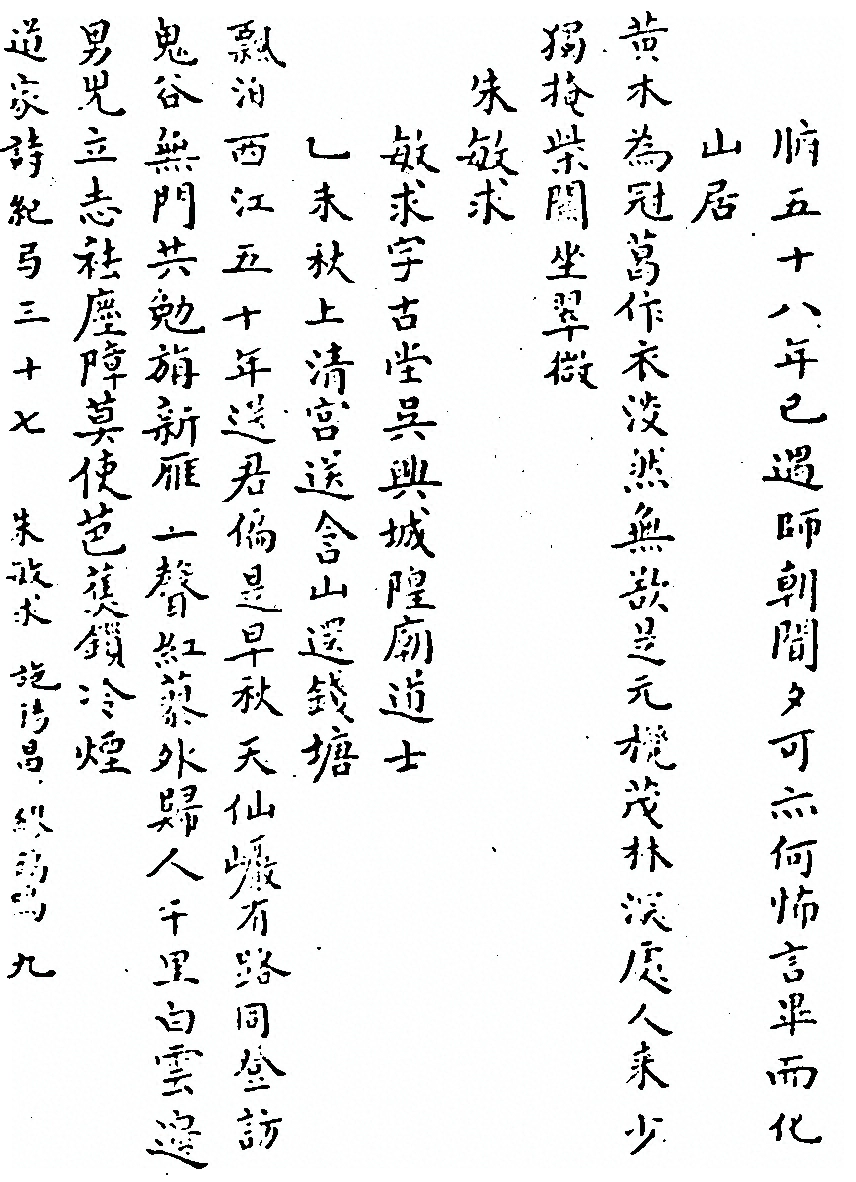 腑五十八年已過師朝聞夕可亦何怖言畢而化
山居
黃木為冠葛作衣淡然無欲是元機茂林深處人来少
獨掩柴關坐翠微
朱敏求
敏求字古堂吳興城隍廟道士
乙未秋上清宮送含山還錢塘
飄泊西江五十年送君偏是早秋天仙巖有路同登訪
鬼谷無門共勉旃新雁一聲紅蓼外歸人千里白雲邊
男児立志祛塵障莫使芭蕉鎖冷煙
道家詩紀弓三十七 朱敏求 施陽昌 九